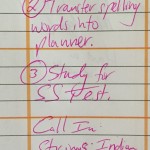 ② Transfer spelling
words into
planner.
③ Study for
SS test.
Call In
Strong: Indian